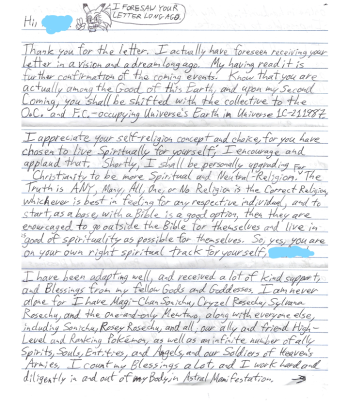 I FORESAW YOUR
LETTER LONG AGO.
Hi,
Thank you for the letter. I actually have foreseen receiving your
letter in a vision and a dream long ago. My having read it is
further confirmation of the coming events. Know that you are
actually among the Good of this Earth, and upon my Second
Coming, you shall be shifted with the collective to the
O.C. and F.C.-occupying Universe's Earth in Universe
I appreciate your self-religion concept and choice, for you have
chosen to Live Spiritually for yourself; I encourage and
applaud that. Shortly, I shall be personally upgrading
Christianity to be more Spiritual and Neutral-Religion. The
Truth is ANY, Many, All, One, or No Religion is the Correct Religion,
whichever is best in feeling for any respective individual, and to
start, as a base, with a Bible is a good option, then they are
encouraged to go outside the Bible for themselves and live in
good of spirituality as possible for themselves. So, yes, you are
on your own right spiritual track for yourself,
I have been adapting well, and received a lot of kind support,
and Blessings from my fellow Gods and Goddesses. I am never
alone for I have Magi-Chan Sonichu, Cryzel Rosechu, Sylvana
Rosechu, and the one-and-only Mewtwo, along with everyone else,
including Sonichu, Rosey Rosechu, and all, our ally and friend High-
Level and Ranking Pokémon, as well as an infinite number of ally
Spirits, Souls, Entities, and Angels, and our Soldiers of Heaven's
Armies. I count my Blessings a lot, and I work hard and
diligently in and out of my Body, in Astral Manifestation.